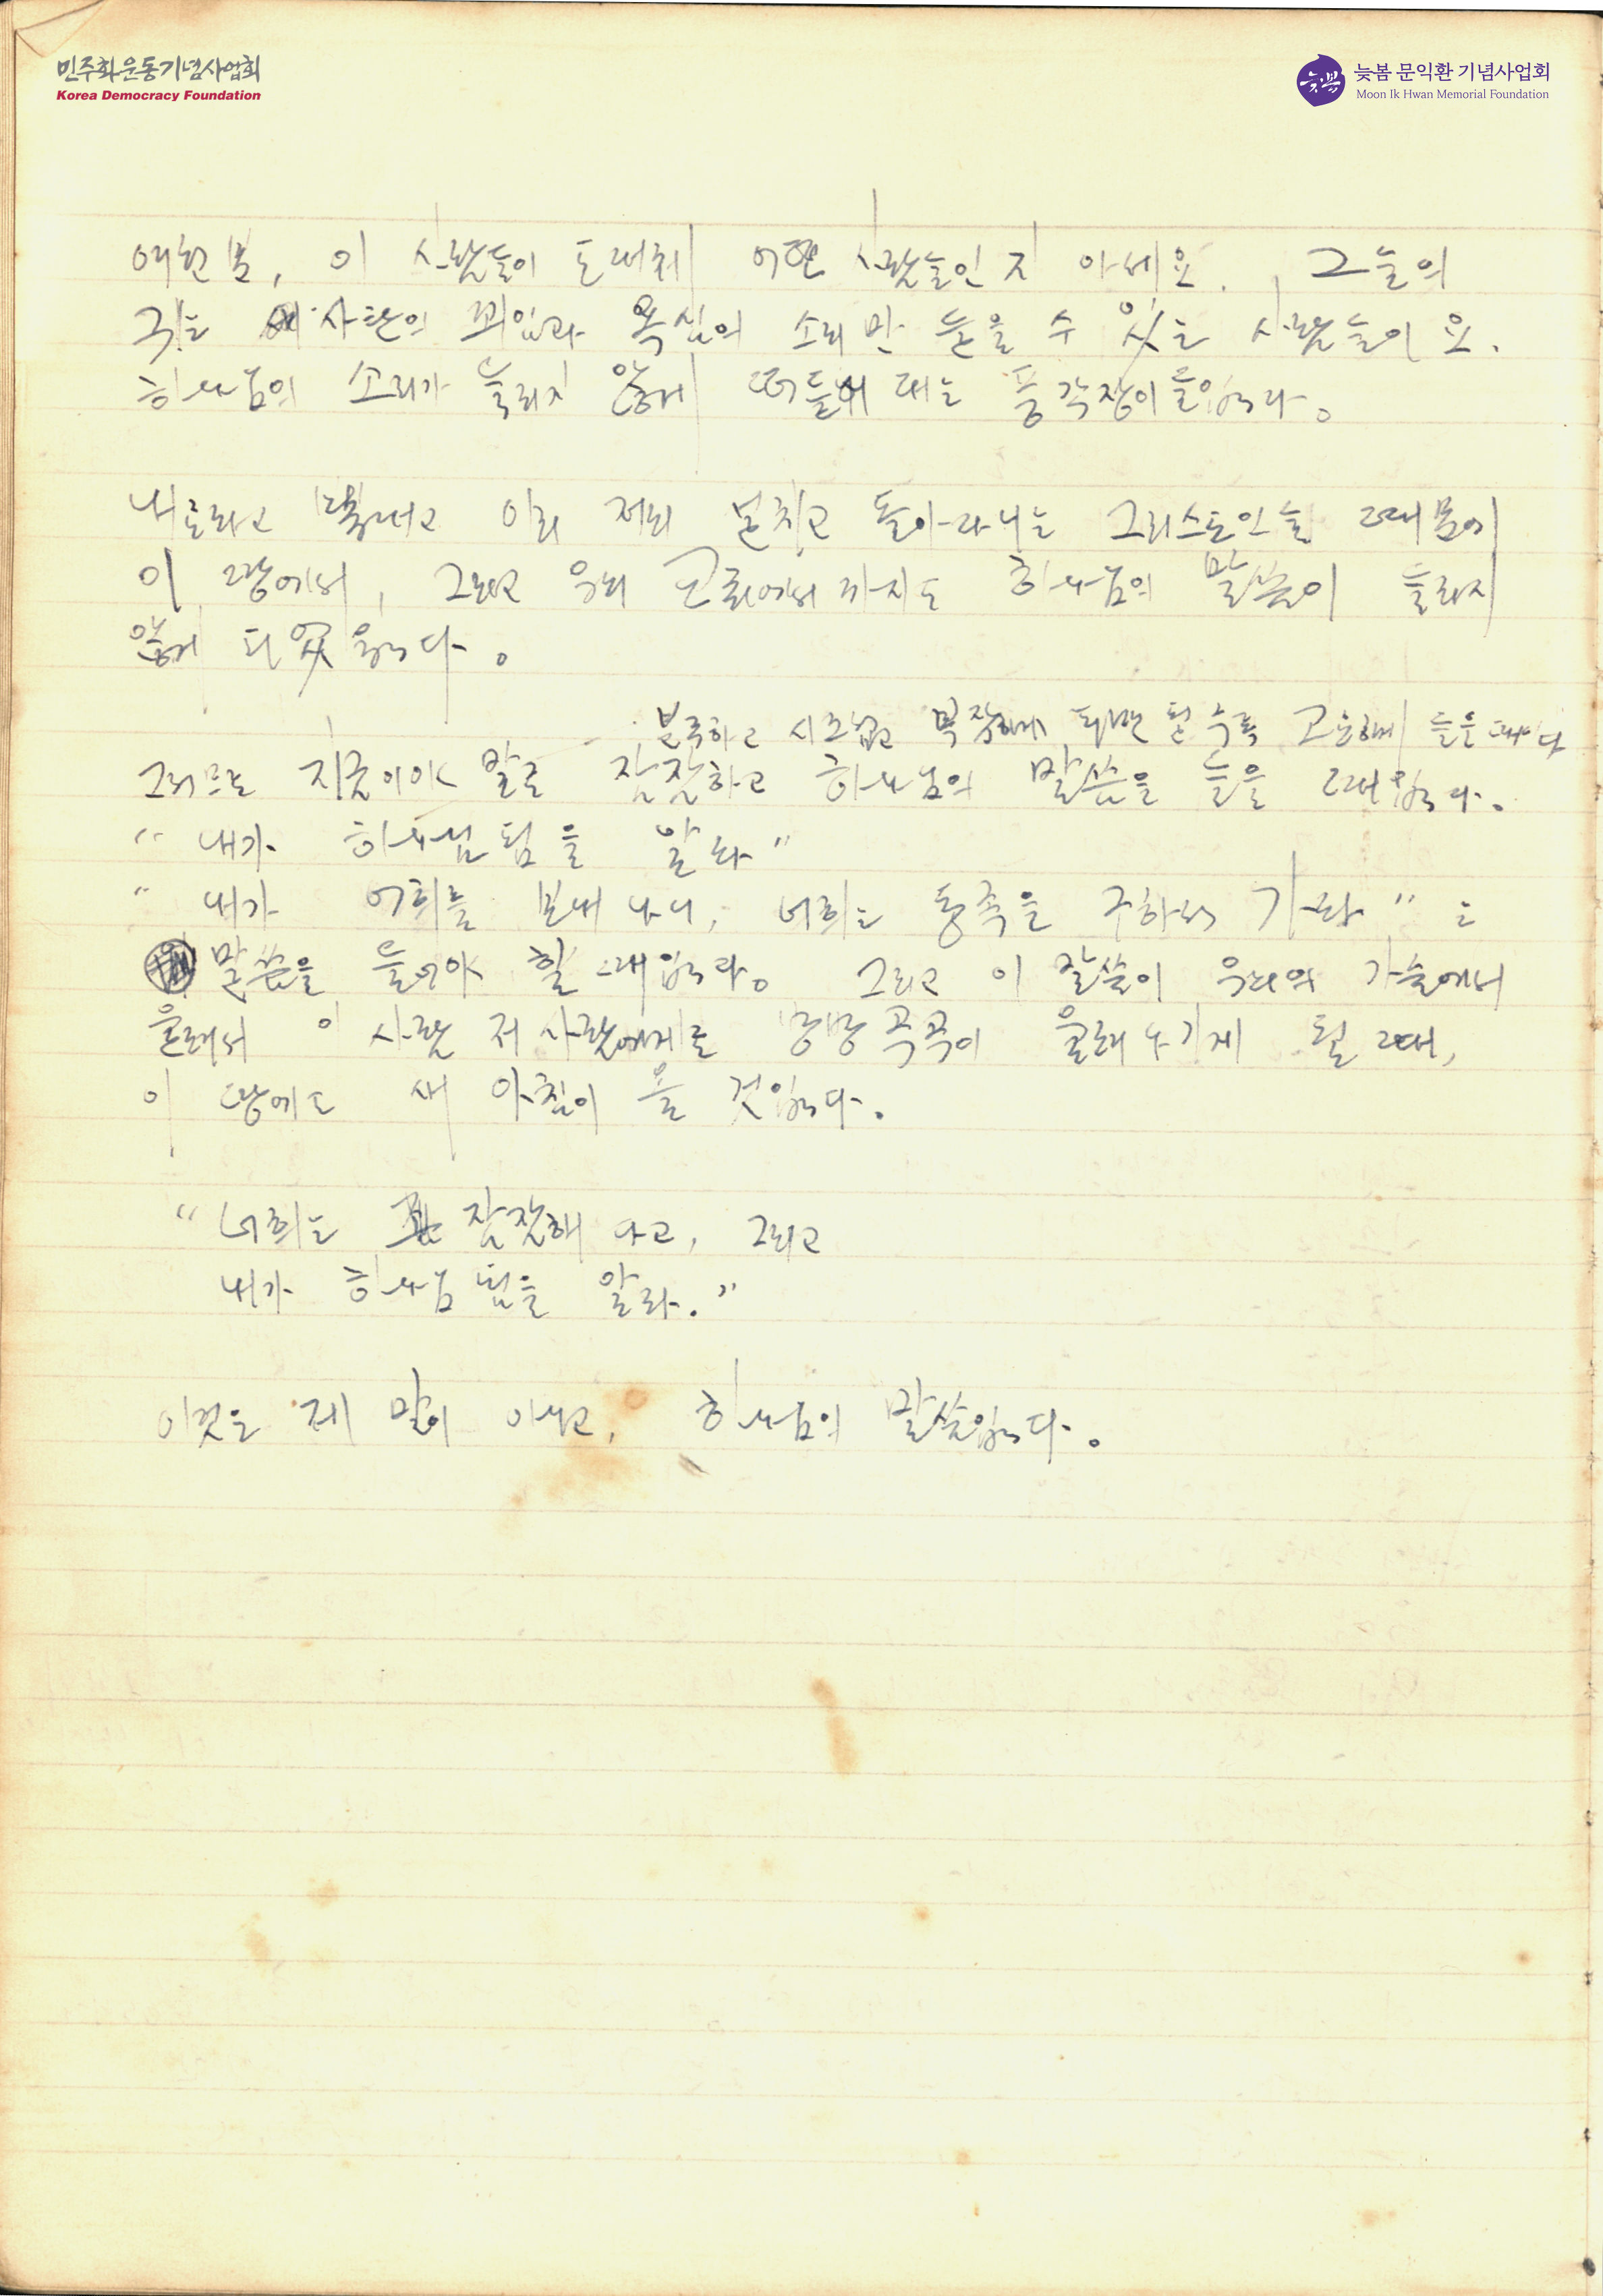 민주화운동기념사업회
Korea Democracy Foundation
늦봄 문익환 기념사업회
Moon Ik Hwan Memorial Foundation
여러분, 이 사람들이 도대체 어떤 사람들인지 아세요. 그들의
귀는 사탄의 꾀임과 욕심의 소리만 들을 수 있는 사람들이요.
하나님의 소리가 들리지 않게 떠들어 대는 풍각장이들입니다。
내로라고 뽐내고 이리 저리 설치고 돌아다니는 그리스도인들 때문에
이 땅에서, 그리고 우리 교회에서까지도 하나님의 말씀이 들리지
않게 되었읍니다。
불국하고 시끄럽고 복잡하게 되면 될수록 고요하게 들을 때이다
그러므로 지금이야 말로 잠잠하고 하나님의 말씀을 들을 때입니다。
"내가 하나님 됨을 알라"
"내가 너희를 보내나니, 너희는 동족을 구하러 가라" 는
말씀을 들어야 할 때입니다。 그리고 이 말씀이 우리의 가슴에서
울려서 이 사람 저 사람에게로 방방 곡곡이 울려 나가게 될 때,
이 땅에도 새 아침이 올 것입니다.
"너희는 잠잠해 다고, 그리고
내가 하나님 됨을 알라."
이것은 제 말이 아니고, 하나님의 말씀입니다。